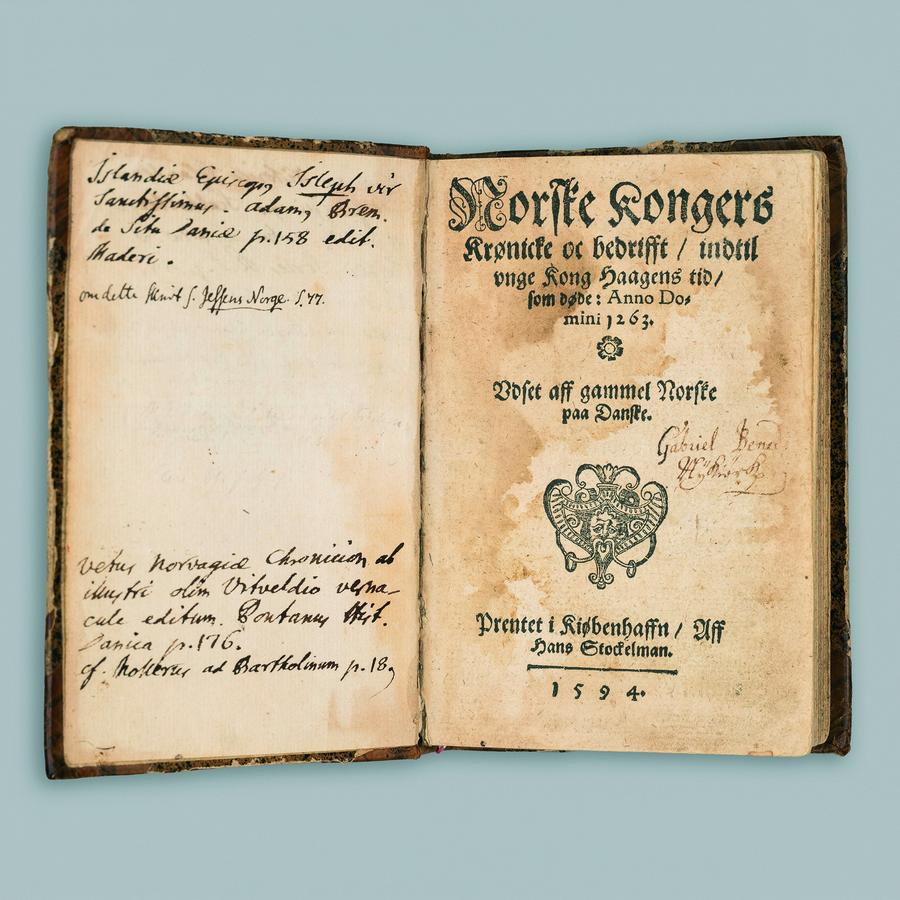 Islandiæ Episcopq Isleph vir
Sanctissimus. adamq Brem.
de Situ Daniæ p.158 edit.
Maderi.
om dette skrivt s. Jessens Norge. S. 77.
vetus Norvagiæ Chronicion ab
illustri olim Vitveldio verna-
cule editum. Pontanus Hist.
Danica p. 176.
cf. Mollerus ad Bartholinum p. 18,
Norske Kongers
Krønicke oc bedrifft / indtil
vnge Kong Haagens tid /
som døde: Anno Do-
mini 1263.
Vdset aff gammel Norske
paa Danske.
Gabriel
Prentet i Kiøbenhaffn / Aff
Hans Stockelman.
1594.